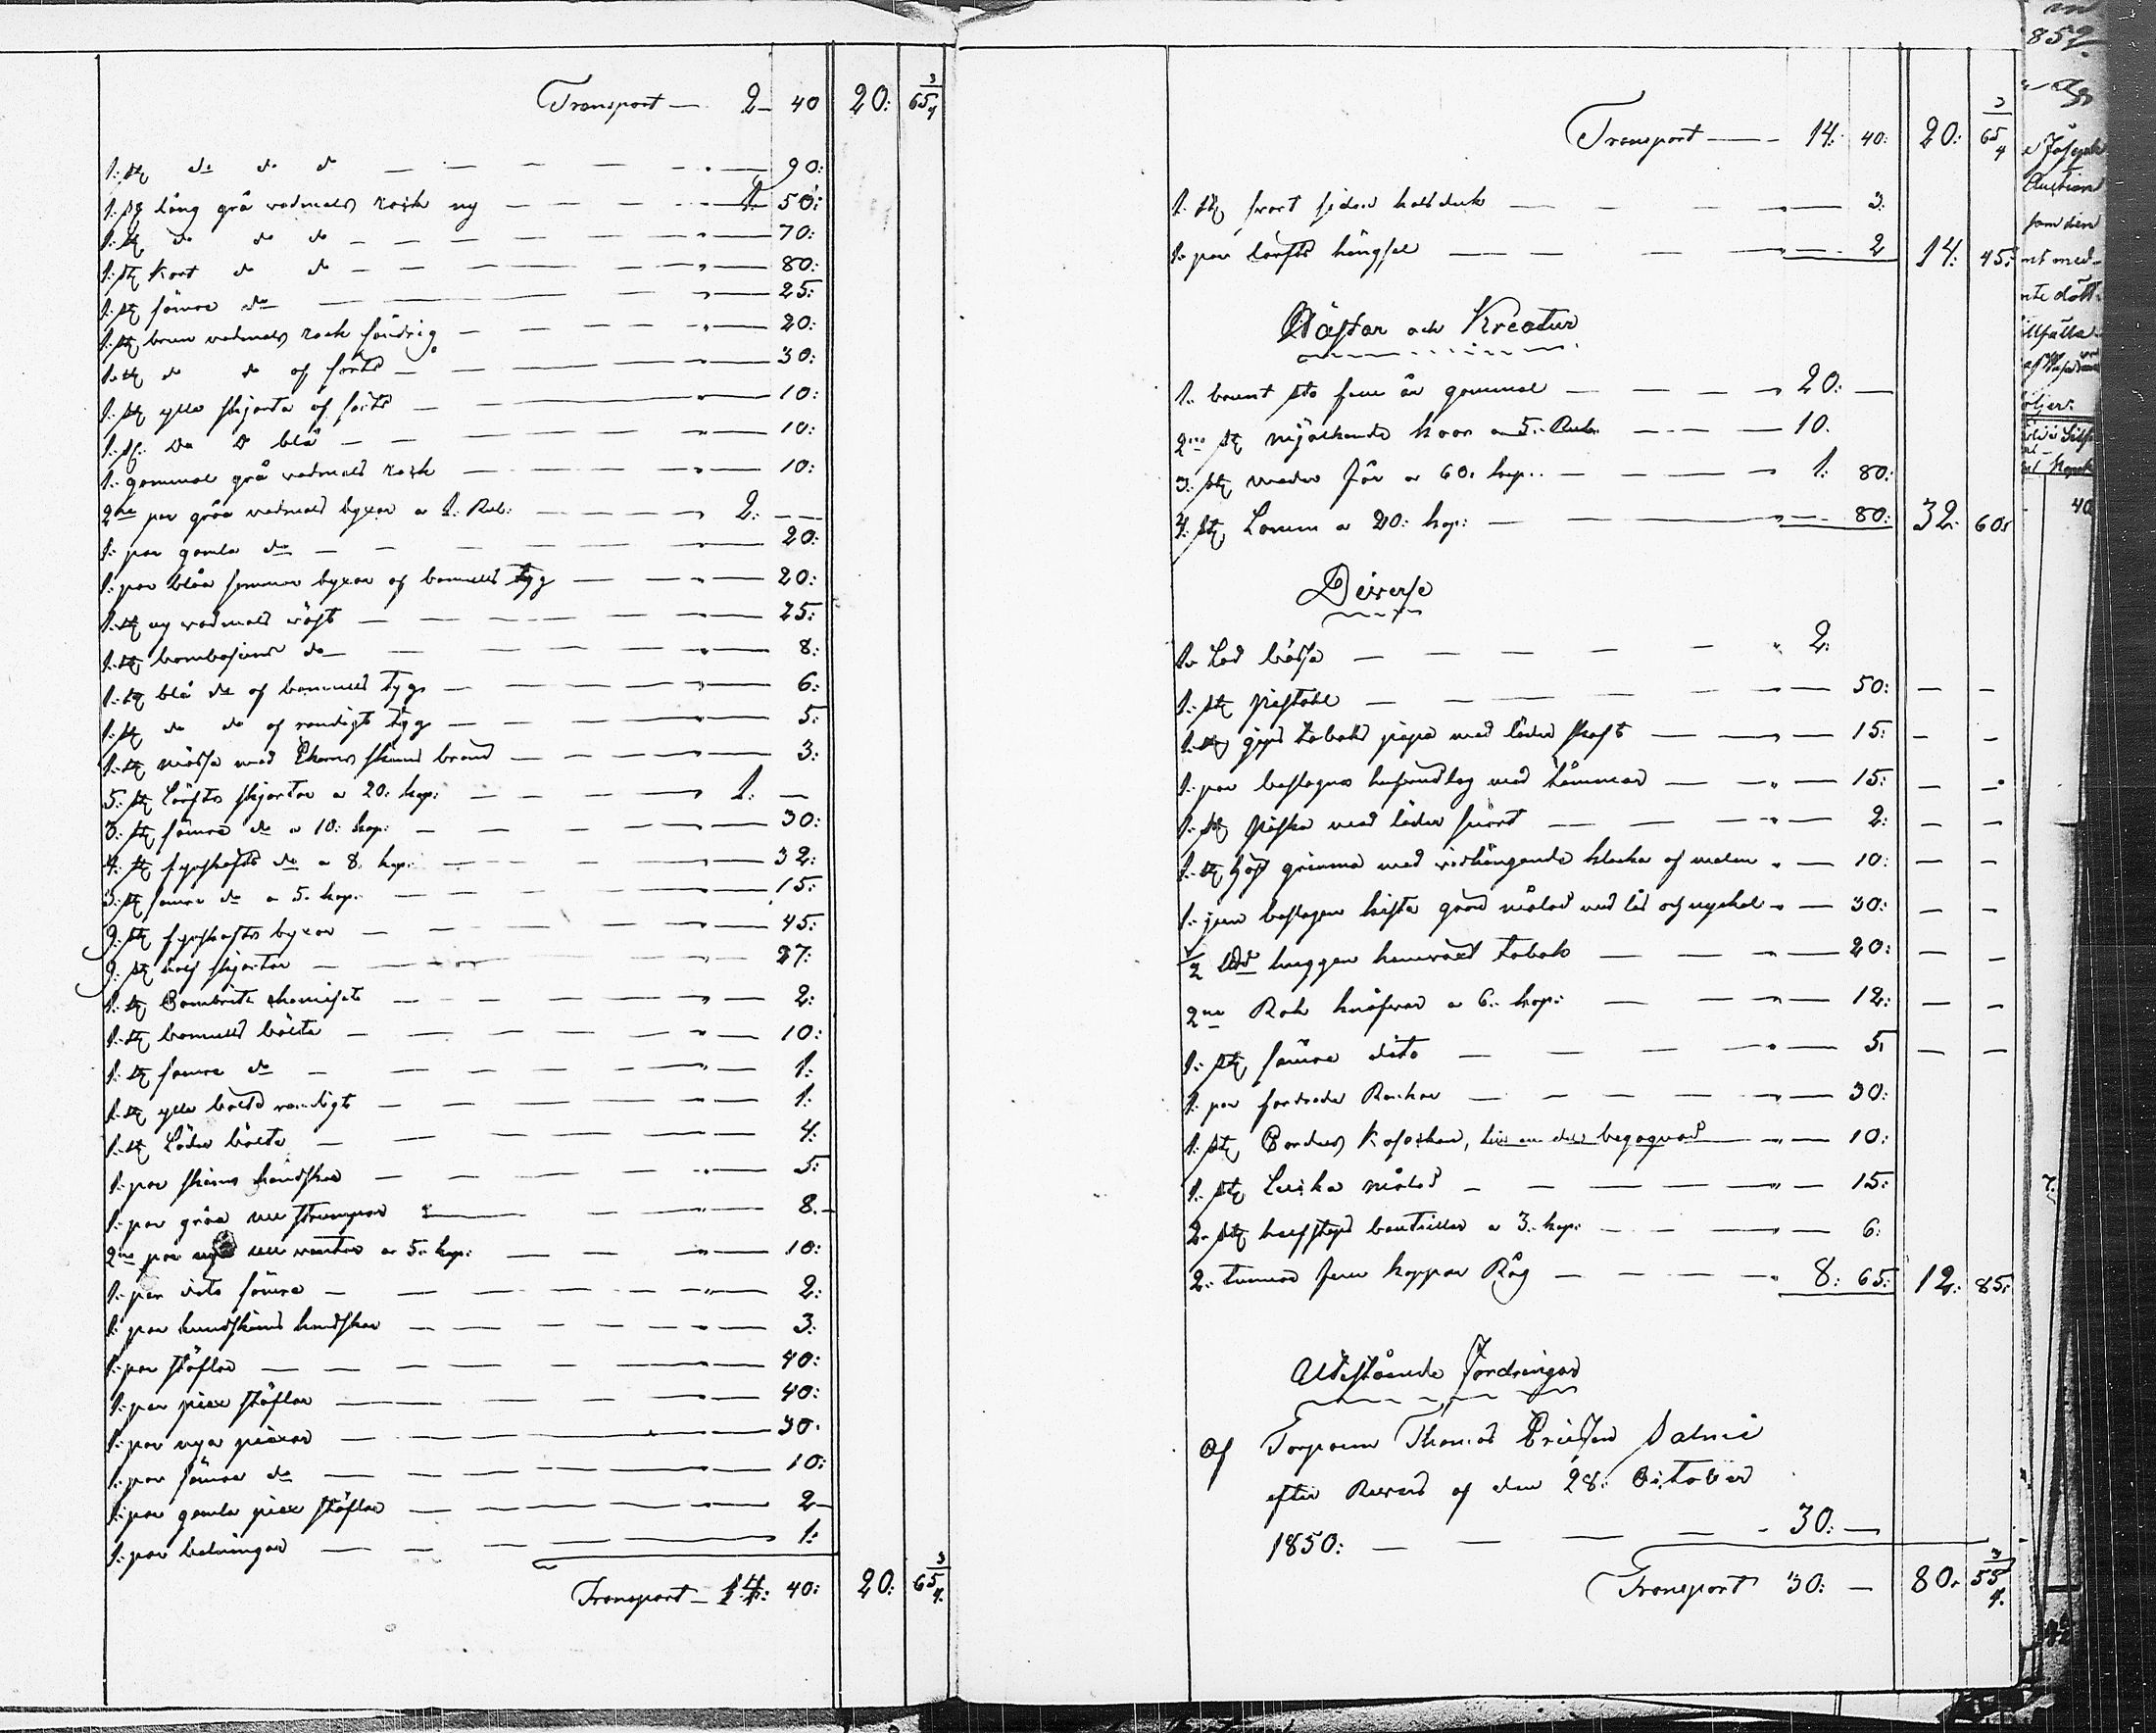 Transport — 2 – 40 20: 65 3/4
1. st: do do do — 90:
1. st: lång grå vadmals rock ny — 1 50:
1. st: do do do — 70:
1. st: kort do do — 80:
1. st: sämre do — 25:
1. st: brun vadmals rock söndrig — 20:
1. st: do do — 30:
1. st: ylle skjorta — 10:
1. st: do do blå — 10:
1. gammal grå vadmals rock — 10:
2ne par gråa vadmals byxor a 1. Rub: — 2: —
1. par gamla do — 20:
1. par blåa sommar byxor af bomulls tyg — 20:
1. st: ny vadmals väst — 25:
1. st: bombasins do — 8:
1. st: blå do af bomulls tyg — 6:
1. st: do do af randigt tyg — 5:
1. st: mössa med Ekorns skinns bräm — 3:
5. st: Lärfts skjortor a 20: kop: — 1: —
3. st: sämre do a 10: kop: — 30:
4. st: fyrskafts do a 8. kop: — 32:
3. st: sämre do a 5. kop: — 15:
9. st: fyrskafts byxor — 45:
9. st: half skjortor — 27:
1. st: — 2:
1. st: bomulls bälte — 10:
1. st: sämre do — 1:
1. st: ylle bälte randigt — 1:
1. st: Läder bälte — 4:
1. par skinns handskar — 5:
1. par gråa ull strumpor — 8.
2ne par nya ull vantar a 5. kop: — 10:
1. par dito sämre — 2:
1. par hundskinns handskar — 3.
1. par stöflor — 40:
1. par piex stöflor — 40:
1. par nya piexor — 30.
1. par sämre do — 10:
1. par gamla piex stöflor — 2
1. par halningar — 1:
Transport — 14: 40: 20: 65 3/4
Transport — 14: 40: 20: 65 3/4
1. st: svart siden halsduk — 3.
1. par lärfts hängsel — 2 14: 45:
Hästar och Kreatur
1. brunt sto fem år gammal — 20: —
2ne st: mjölkande kor a 5. Rub. — 10.
3. st: Får a 60. kop: — 1: 80:
4. st: Lamm a 20: kop: — 80: 32: 60:
Diverse
1. Lod bössa — 2:
1. st: Pistohl — 50: — —
1. st: gips tobaks pipa med läder skaft — 15: — —
1. par beslagna med tömmar — 15: — —
1. st: Piska med läder snört — 2: — —
1. st: grimma med vidhängande klocka af malm — 10: — —
1. jern beslagen kista grön målad med lås och nyckel — 30: — —
1/2 huggen hemväxt tobak — 20: — —
2ne Rak knifvar a 6. kop: — 12: — —
1. st: sämre dito — 5 — —
1. par — 30:
1. st: begagnad — 10:
1. st: målad — 15:
2. st: halfstops bouteiller a 3. kop: — 6:
2. tunnor fem kappar Råg — 8: 65: 12: 85:
Utestående Fordringar
Af Torparen Thomas Ericsson Salmi
efter Revers af den 28: October
1850: — 30: —
Transport 30: — 80: 55 3/4